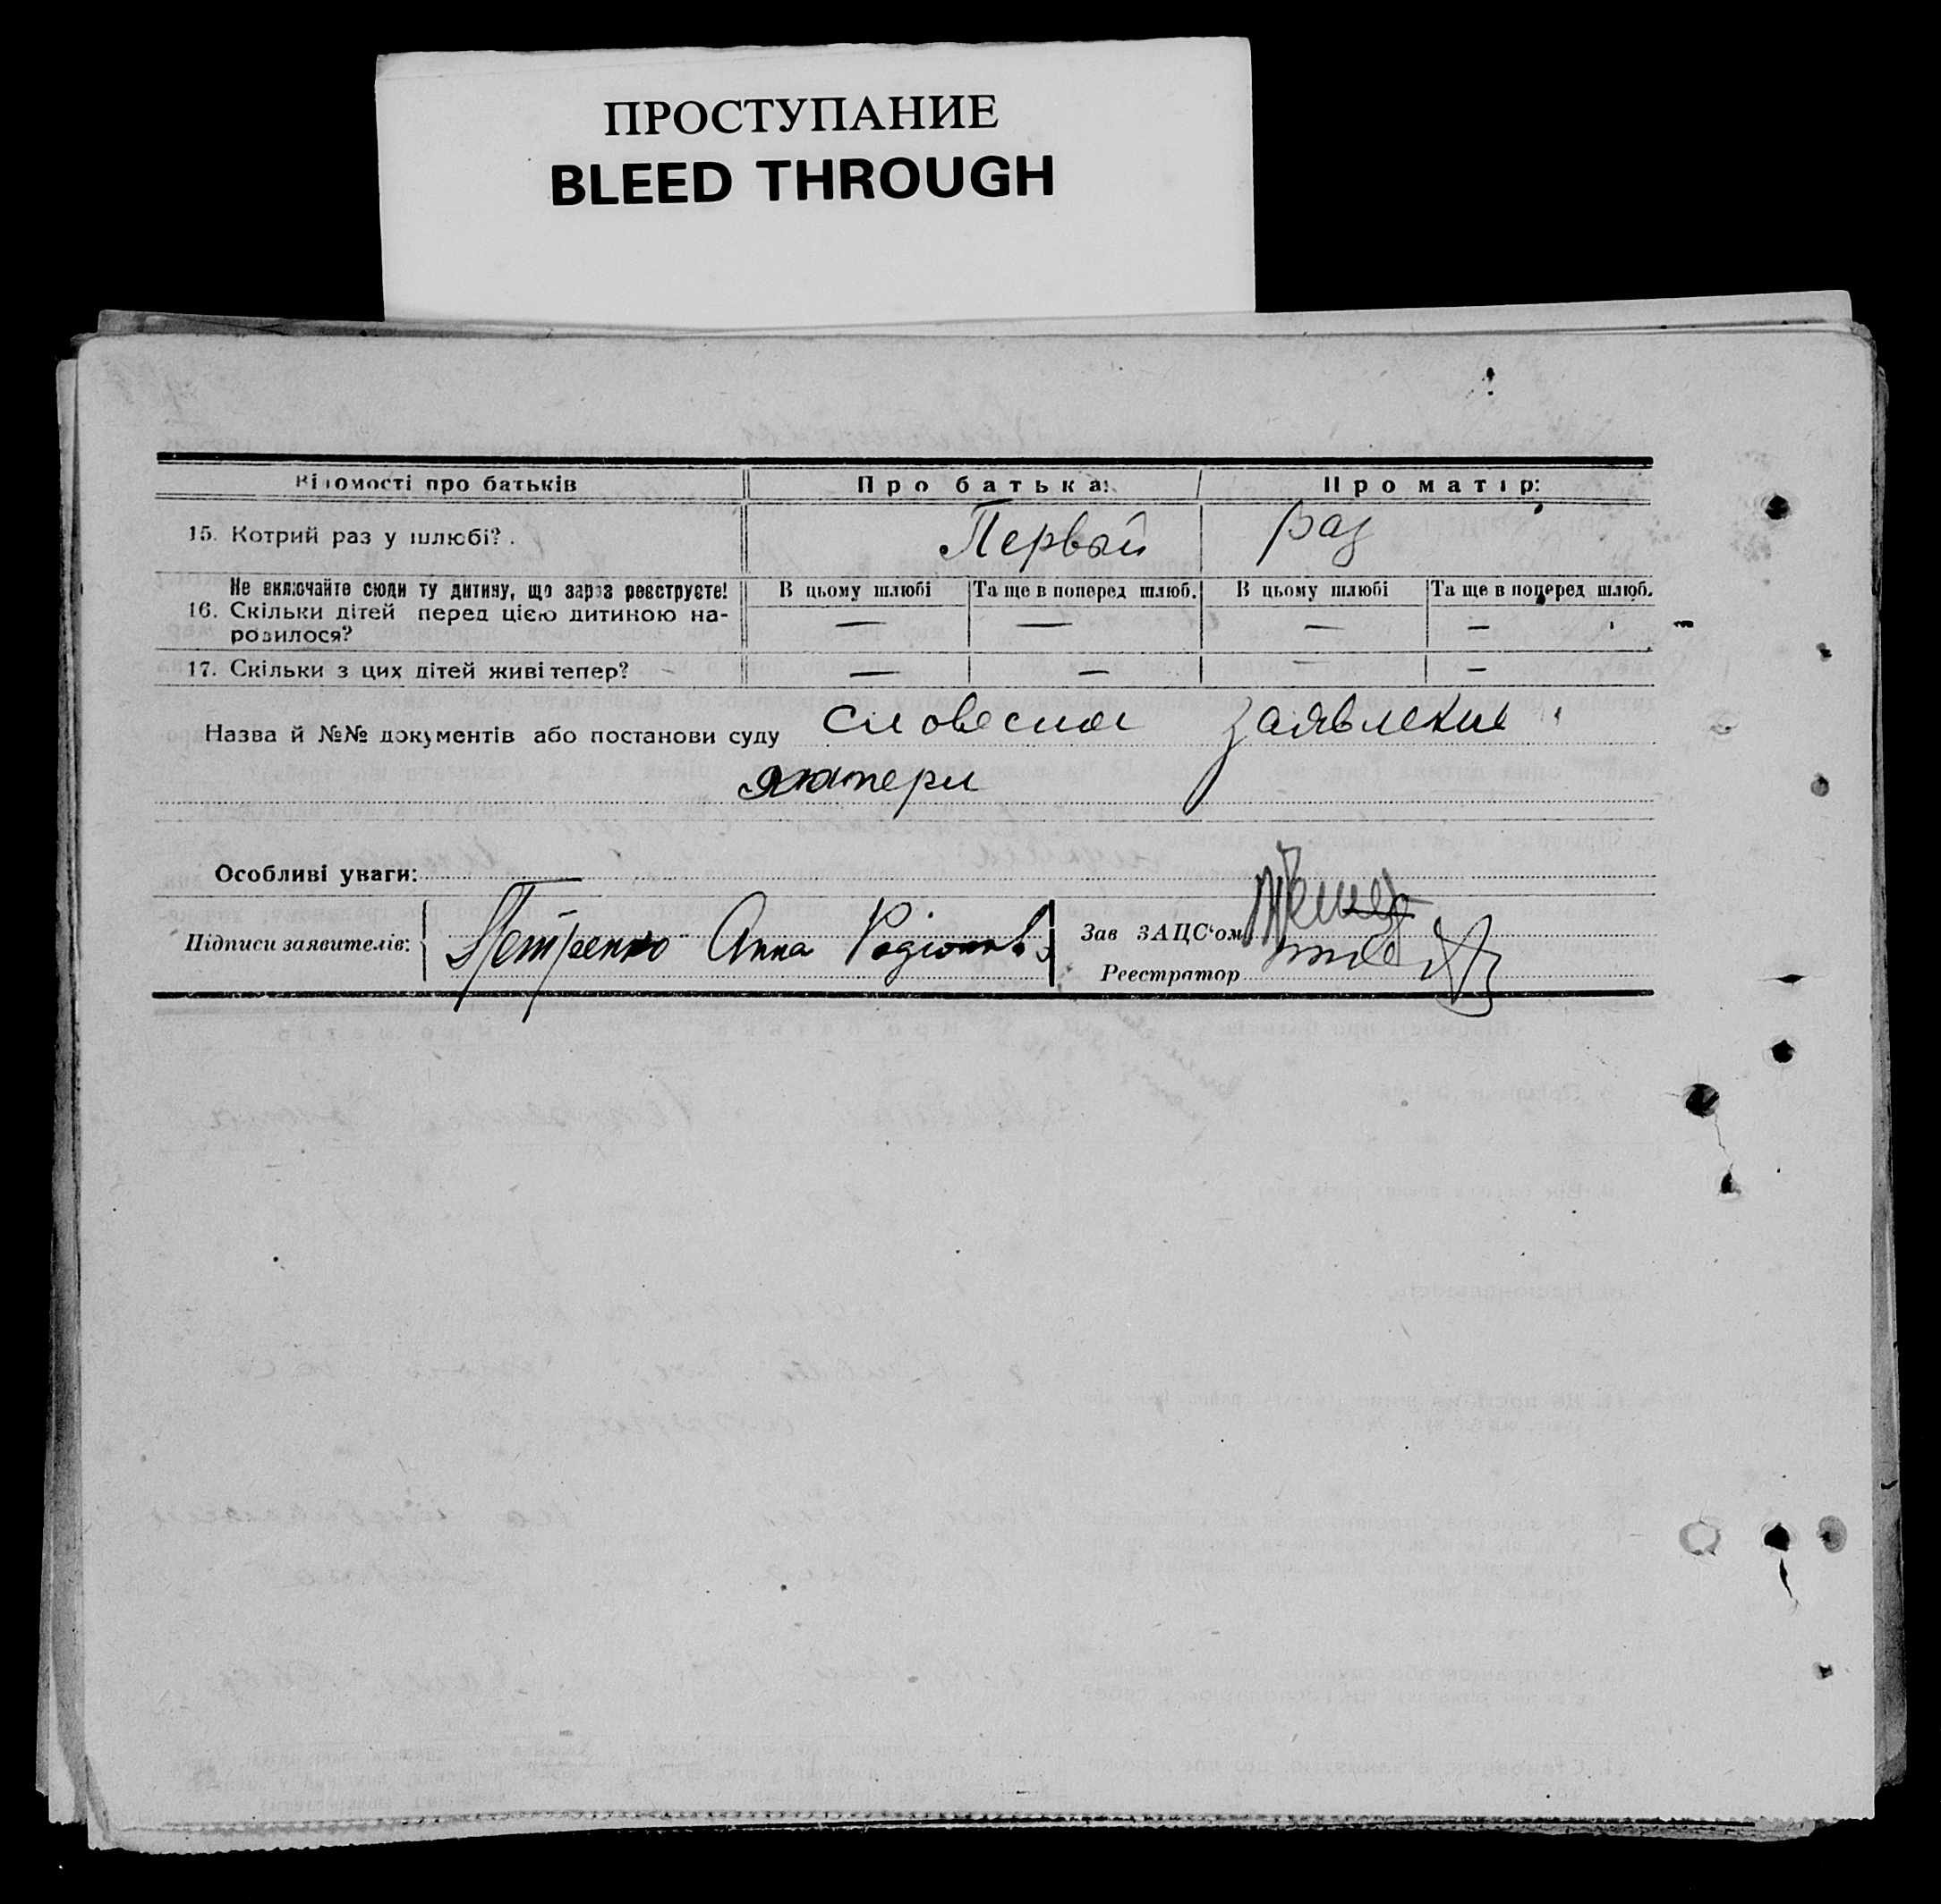 ПРОСТУПАНИЕ
BLEED THROUGH
Відомості про батьків Про батька: Про матір:
15. Котрий раз у шлюбі? Первый раз
Не включайте сюди ту дитину, що зараз реєструєте! В цьому шлюбі Та ще в поперед шлюб. В цьому шлюбі Та ще в поперед шлюб.
16. Скільки дітей перед цією дитиною на-
родилося? — — — —
17. Скільки з цих дітей живі тепер? — — —
Назва й №№ документів або постанови суду словесное заявление
матери
Особливі уваги: —
Підписи заявителів: Петренко Анна Родіонов
Зав ЗАЦС‘ом
Реестратор